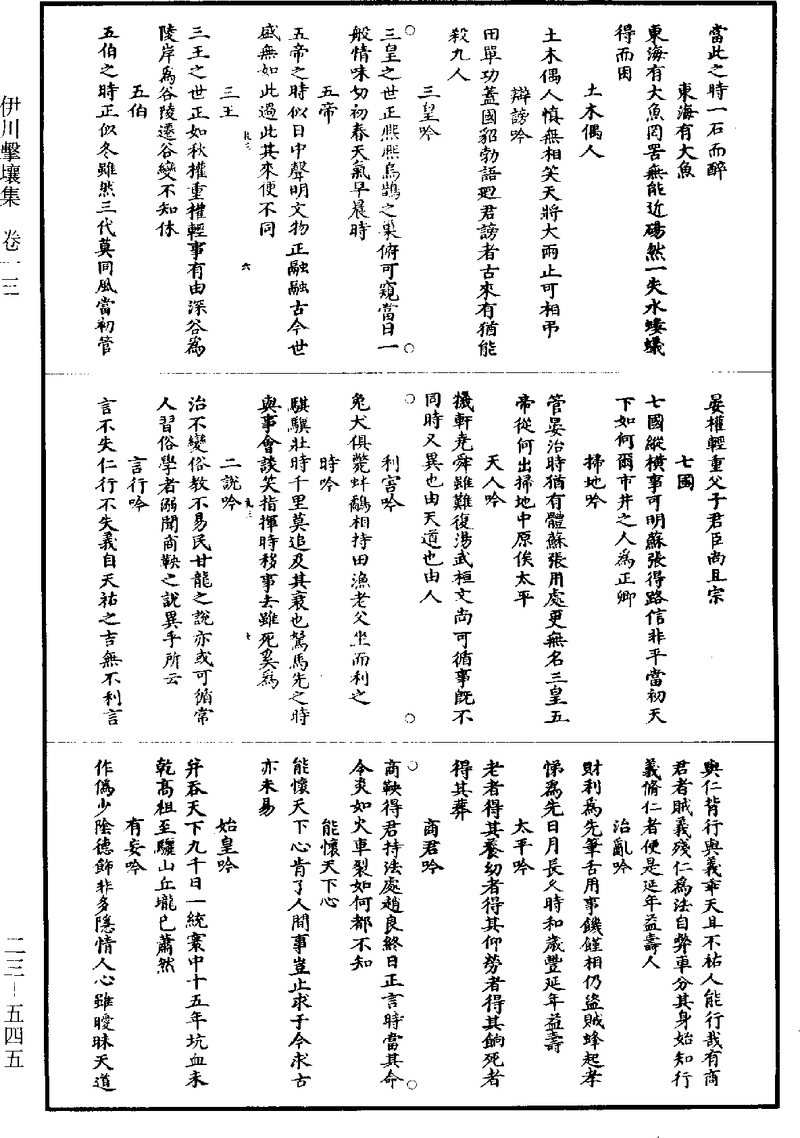 當此之時一石而醉
東海有大魚
東海有大魚罔罟無能近碭然一失水螻蟻
得而困
土木偶人
土木偶人慎無相笑天將大雨止可相弔
辯謗吟
田單功蓋國貂勃語廻君謗者古來有猶能
殺九人
三皇吟
三皇之世正熈熈烏鵲之巢俯可窺當日一
般情味切初春天氣早晨時
五帝
五帝之時似日中聲明文物正融融古今世
盛無如此過此其來便不同
三王
三王之世正如秋權重權輕事有由深谷為
陵岸為谷陵遷谷變不知休
五伯
五伯之時正似冬雖然三代莫同風當初管
晏權輕重父子君臣尚且宗
七國
七國縱橫事可明蘇張得路信非平當初天
下如何爾市井之人為正卿
掃地吟
管晏治時猶有體蘇張用處更無名三皇五
帝從何出掃地中原俟太平
天人吟
機軒堯舜雖難復湯武桓文尚可循事旣不
同時又異也由天道也由人
利害吟
兔犬俱斃蚌鷸相持田漁老父坐而利之
時吟
騏驥壯時千里莫追及其衰也駑馬先之時
與事會談笑指揮時移事去雖死奚為
二說吟
治不變俗教不易民甘龍之說亦或可循常
人習俗學者溺聞商鞅之說異乎所云
言行吟
言不失仁行不失義自天祐之吉無不利言
與仁背行與義乖天且不祐人能行哉有商
君者賊義殘仁為法自弊車分其身始知行
義脩仁者便是延年益壽人
治亂吟
財利為先筆舌用事饑饉相仍盜賊蜂起孝
悌為先日月長久時和歲豐延年益壽
太平吟
老者得其養幼者得其仰勞者得其餉死者
得其葬
商君吟
商鞅得君持法處趙良終日正言時當其命
令炎如火車裂如何都不知
能懷天下心
能懷天下心肯了人間事豈止求于今求古
亦未易
始皇吟
并吞天下九千日一統寰中十五年坑血未
乾高祖至驪山丘壠已蕭然
有妄吟
作僞少陰德飾非多隱情人心雖曖昧天道
伊川擊壤集 卷一三
二三—五四五
九三
六
九三
七